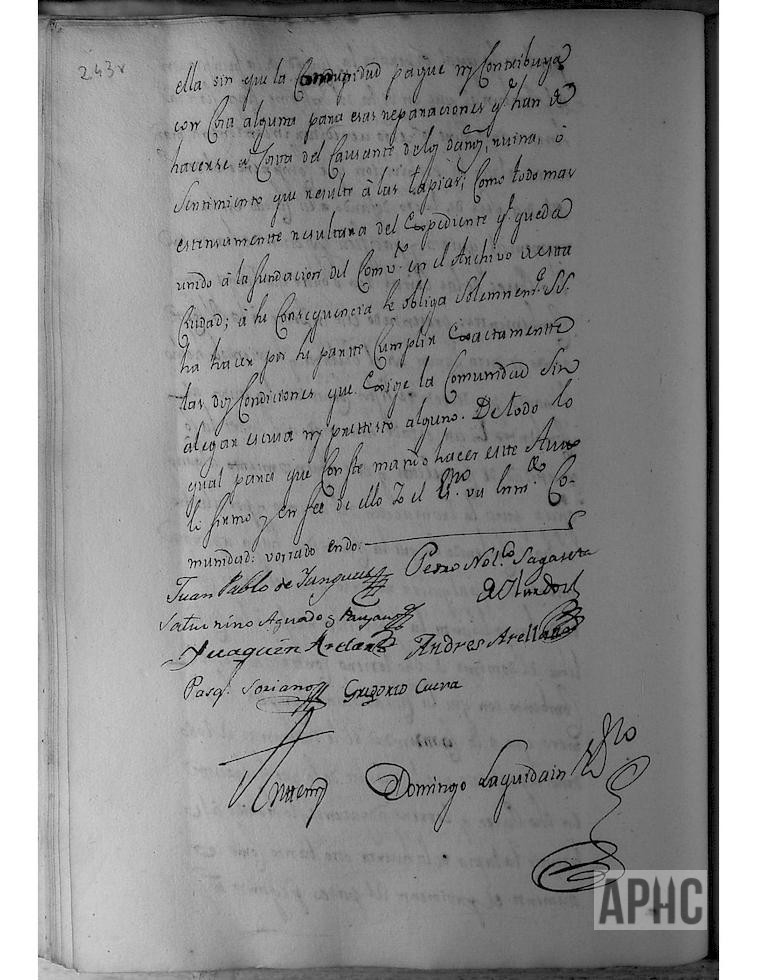 243v
ella sin que la Comunidad pague ny Contribuya
con Cosa alguna para esas reparaciones q.e han de
hacerse a Costa del Causante de los daños, ruina, ó
Sentimiento que resulte á las tapias; Como todo mas
estensamentte resultara del Expediente q.e queda
unido á la fundacion del Comv.to en el Archivo de esta
Ciudad; á cu Consequencia se obliga Solemnem.te SS.
ha hacer por su partte Cumplir Exactamentte
las dos Condiciones que Exige la Comunidad Sin
alegar escusa ny prettesto alguno. De todo lo
qual para que Conste mando hacer este Auto
lo firmo y en fee de ello Yo el Ess.no
munidad: vorrado endo:
Juan Pablo de Yanguas
Pedro Nol.co Sagaseta
Saturnino Aguado y
Joaquin
Andres Arellano
Pasq.l Soriano
Gregorio Cueva
Anttemy
Domingo Laquidain Ess.no
APHC